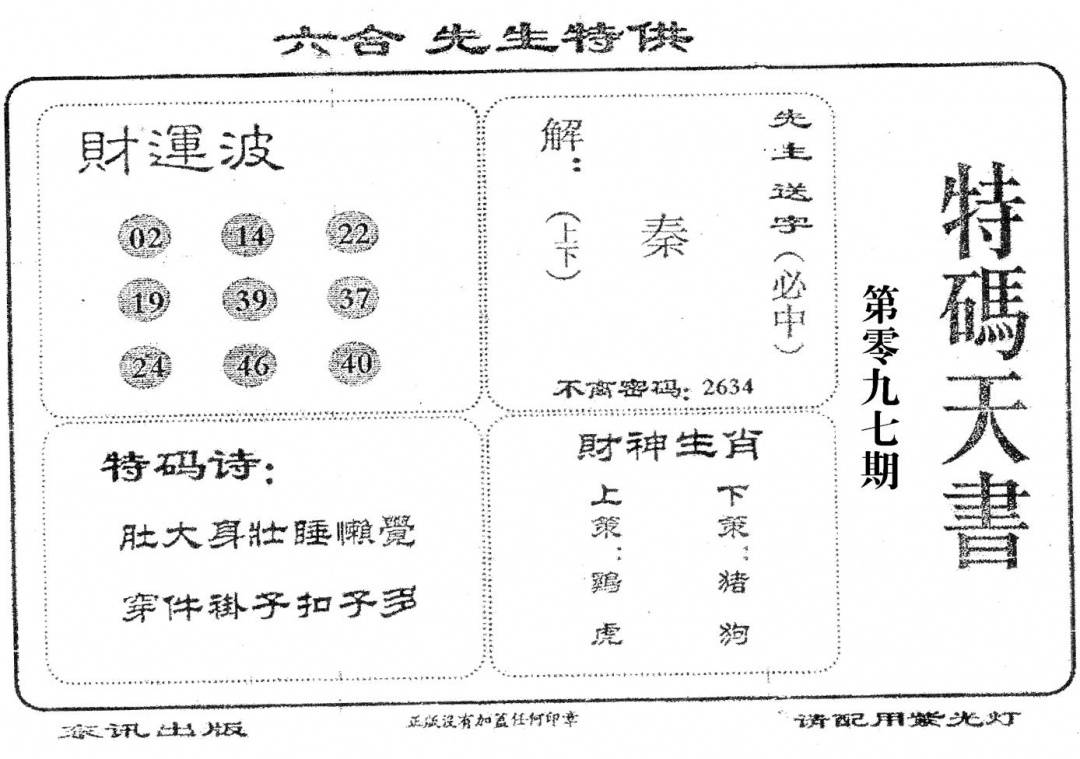 六合 先生特供
財運波
02 14 22
19 39 37
24 46 40
先生送字(必中)
秦
解:(上下)
不离密码: 2634
特码诗:
肚大身壯睡懒覺
穿件褂子扣子多
財神生肖
上策:鷄虎
下策:猪狗
特碼天書
第零九七期
泰讯出版
正版没有加盖任何印章
请配用紫光灯